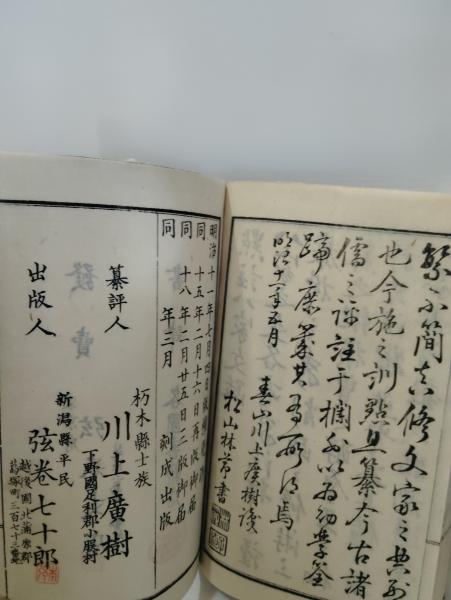 繁不簡真修文家之典型
也今施之訓點且纂今古諸
儒之評註于欄外以為幼學筌
蹄庶幾其有所得焉
明治十一年五月
春山川上廣樹識
松山林芳書
明治十一年七月四日版權
同 十五年二月十六日再版御届
同 十八年二月廿五日三版御届
同 年三月 刻成出版
纂評人
朽木縣士族
川上廣樹
下野國足利郡小俣村
出版人
新潟縣平民
弦卷七十郎
越後國北蒲原郡
葛塚町三百七十三番地